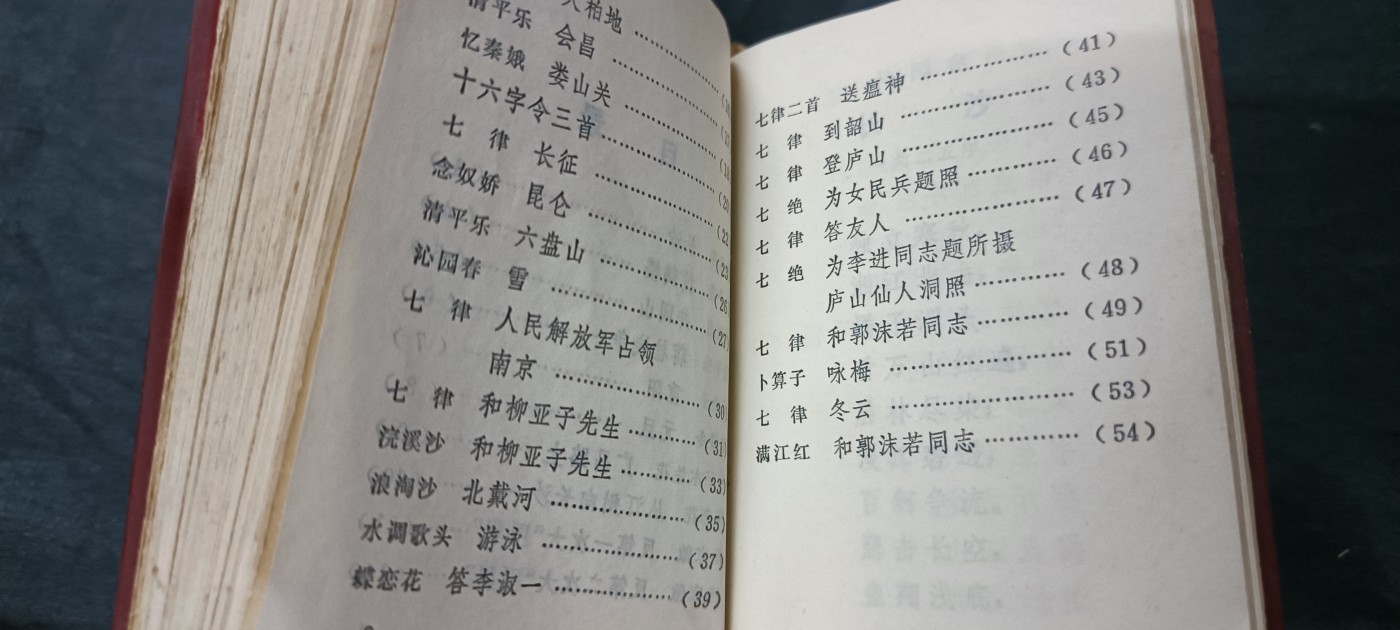 柏地 ……………
清平乐 会昌 ……………
忆秦娥 娄山关 ……………
十六字令三首 ……………(20
七 律 长征 ……………(22
念奴娇 昆仑 ……………(23
清平乐 六盘山 ……………(26
沁园春 雪 ……………(27
七 律 人民解放军占领
南京 ……………(30
七 律 和柳亚子先生 …………(31)
浣溪沙 和柳亚子先生 …………(33)
浪淘沙 北戴河 ……………(35)
水调歌头 游泳 ……………(37)
蝶恋花 答李淑一 ……………(39)
七律二首 送瘟神 ……………(41)
七 律 到韶山 ……………(43)
七 律 登庐山 ……………(45)
七 绝 为女民兵题照 …………(46)
七 律 答友人 ……………(47)
七 绝 为李进同志题所摄
庐山仙人洞照 …………(48)
七 律 和郭沫若同志 …………(49)
卜算子 咏梅 ……………(51)
七 律 冬云 ……………(53)
满江红 和郭沫若同志 …………(54)